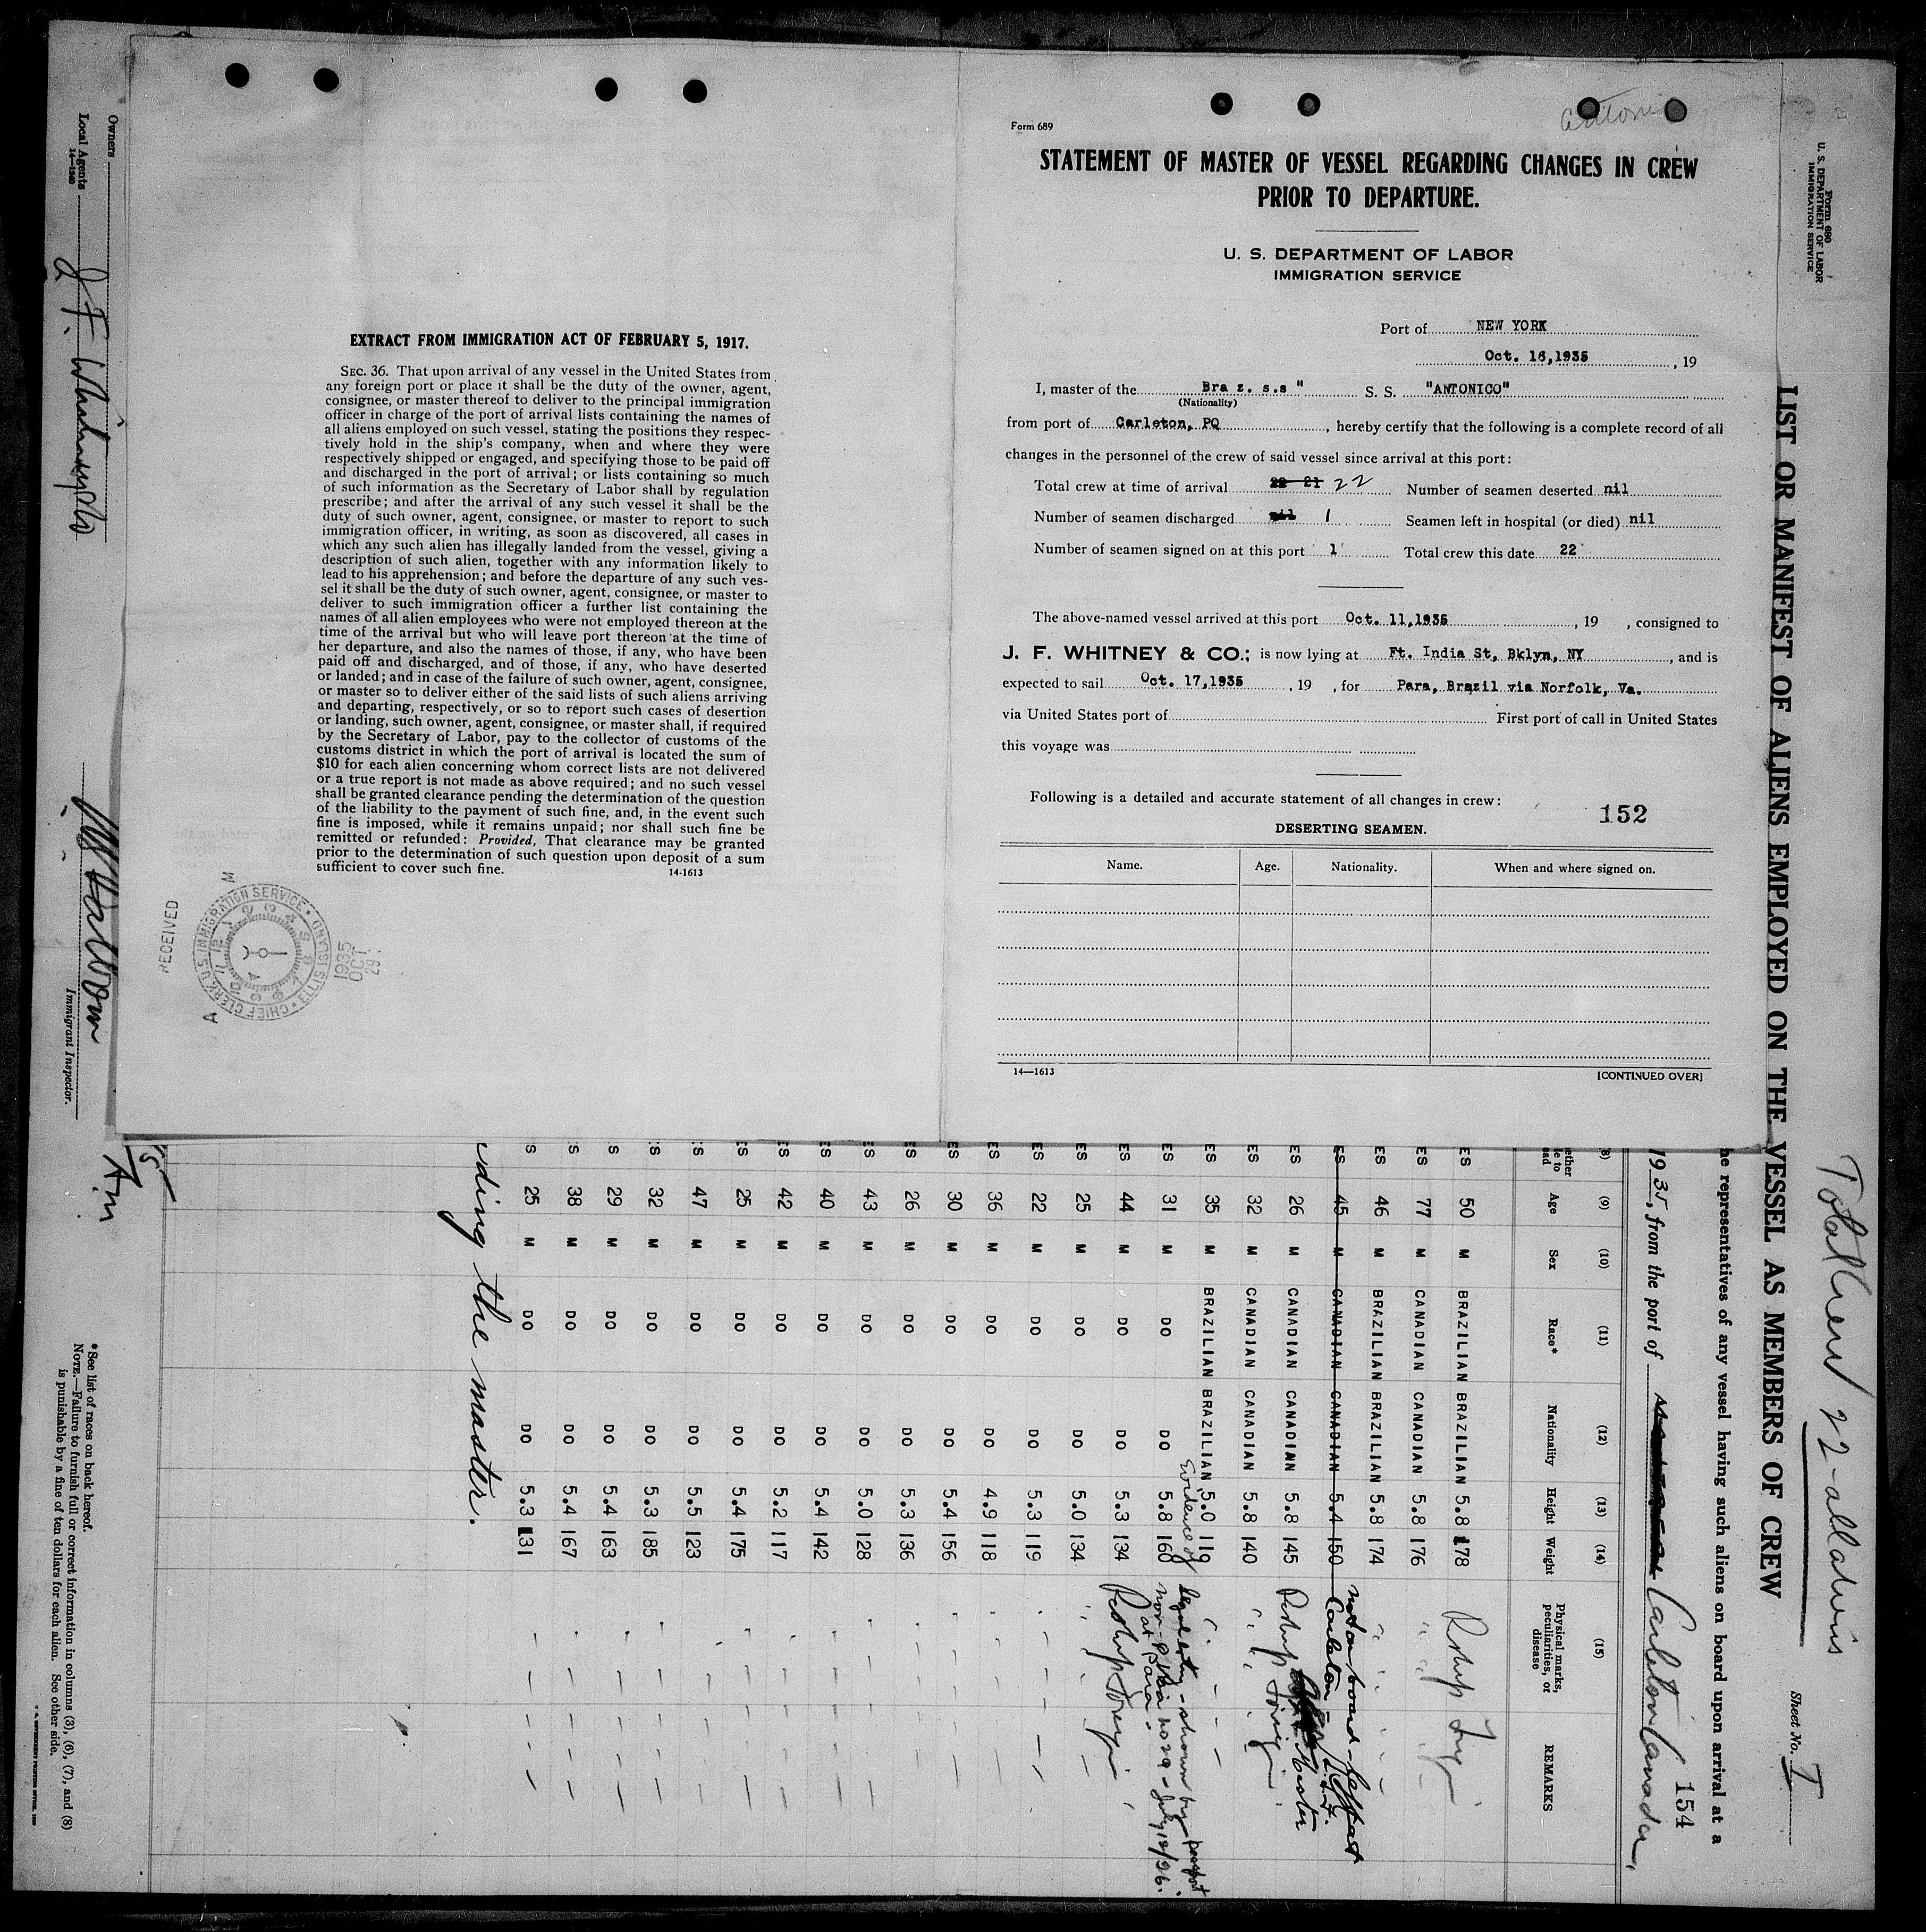 EXTRACT FROM IMMIGRATION ACT OF FEBRUARY 5, 1917.
SEC. 36. That upon arrival of any vessel in the United States from
any foreign port or place it shall be the duty of the owner, agent,
consignee, or master thereof to deliver to the principal immigration
officer in charge of the port of arrival lists containing the names of
all aliens employed on such vessel, stating the positions they respec-
tively hold in the ship's company, when and where they were
respectively shipped or engaged, and specifying those to be paid off
and discharged in the port of arrival; or lists containing so much
of such information as the Secretary of Labor shall by regulation
prescribe; and after the arrival of any such vessel it shall be the
duty of such owner, agent, consignee, or master to report to such
immigration officer, in writing, as soon as discovered, all cases in
which any such alien has illegally landed from the vessel, giving a
description of such alien, together with any information likely to
lead to his apprehension; and before the departure of any such ves-
sel it shall be the duty of such owner, agent, consignee, or master to
deliver to such immigration officer a further list containing the
names of all alien employees who were not employed thereon at the
time of the arrival but who will leave port thereon at the time of
her departure, and also the names of those, if any, who have been
paid off and discharged, and of those, if any, who have deserted
or landed; and in case of the failure of such owner, agent, consignee,
or master so to deliver either of the said lists of such aliens arriving
and departing, respectively, or so to report such cases of desertion
or landing, such owner, agent, consignee, or master shall, if required
by the Secretary of Labor, pay to the collector of customs of the
customs district in which the port of arrival is located the sum of
$10 for each alien concerning whom correct lists are not delivered
or a true report is not made as above required; and no such vessel
shall be granted clearance pending the determination of the question
of the liability to the payment of such fine, and, in the event such
fine is imposed, while it remains unpaid; nor shall such fine be
remitted or refunded: Provided, That clearance may be granted
prior to the determination of such question upon deposit of a sum
sufficient to cover such fine. 14-1613
RECEIVED
CHIEF CLERK U.S. IMMIGRATION SERVICE • ELLIS ISLAND •
1935
OCT
29
Form 689
STATEMENT OF MASTER OF VESSEL REGARDING CHANGES IN CREW
PRIOR TO DEPARTURE.
U. S. DEPARTMENT OF LABOR
IMMIGRATION SERVICE
Port of NEW YORK
Oct. 16,1935, 19
I, master of the Bra z. s.s " S. S. "ANTONICO"
(Nationality)
from port of Carleton, PQ, hereby certify that the following is a complete record of all
changes in the personnel of the crew of said vessel since arrival at this port:
Total crew at time of arrival 22 21 22 Number of seamen deserted nil
Number of seamen discharged nil 1 Seamen left in hospital (or died) nil
Number of seamen signed on at this port 1 Total crew this date 22
The above-named vessel arrived at this port Oct. 11,1935, 19 , consigned to
J. F. WHITNEY & CO.; is now lying at Ft. India St, Bklyn, NY, and is
expected to sail Oct. 17,1935, 19 , for Para, Brazil via Norfolk, Va.
via United States port of First port of call in United States
this voyage was
Following is a detailed and accurate statement of all changes in crew:
152
DESERTING SEAMEN.
Name. Age. Nationality. When and where signed on.
14—1613 [CONTINUED OVER]
Form 680
U. S. DEPARTMENT OF LABOR
IMMIGRATION SERVICE
Total Crew 22 - all aliens
Sheet No. 1
LIST OR MANIFEST OF ALIENS EMPLOYED ON THE VESSEL AS MEMBERS OF CREW
he representatives of any vessel having such aliens on board upon arrival at a
154
1935, from the port of Carleton Canada,
(9) (10) (11) (12) (13) (14) (15)
Age Sex Race* Nationality Height Weight Physical marks, peculiarities, or disease REMARKS
ES 50 M BRAZILIAN BRAZILIAN 5.8 178
ES 77 M CANADIAN CANADIAN 5.8 176
ES 46 M BRAZILIAN BRAZILIAN 5.8 174
ES 45 M CANADIAN CANADIAN 5.4 150 not on board - left at Carleton
ES 26 M CANADIAN CANADIAN 5.8 145
ES 32 M CANADIAN CANADIAN 5.8 140
ES 35 M BRAZILIAN BRAZILIAN 5.0 119
ES 31 M DO DO 5.8 160
ES 44 M DO DO 5.3 134
ES 25 M DO DO 5.0 134
ES 22 M DO DO 5.3 119
ES 36 M DO DO 4.9 118
ES 30 M DO DO 5.4 156
ES 26 M DO DO 5.3 136
ES 43 M DO DO 5.0 128
ES 40 M DO DO 5.4 142
ES 42 M DO DO 5.2 117
ES 25 M DO DO 5.4 175
ES 47 M DO DO 5.5 123
ES 32 M DO DO 5.3 185
S 29 M DO DO 5.4 163
S 38 M DO DO 5.4 167
S 25 M DO DO 5.3 131
uding the master.
*See list of races on back hereof.
NOTE.—Failure to furnish full or correct information in columns (3), (6), (7), and (8)
is punishable by a fine of ten dollars for each alien. See other side.
Owners
Local Agents J F. Whitney & Co
14—1240
Immigrant Inspector.